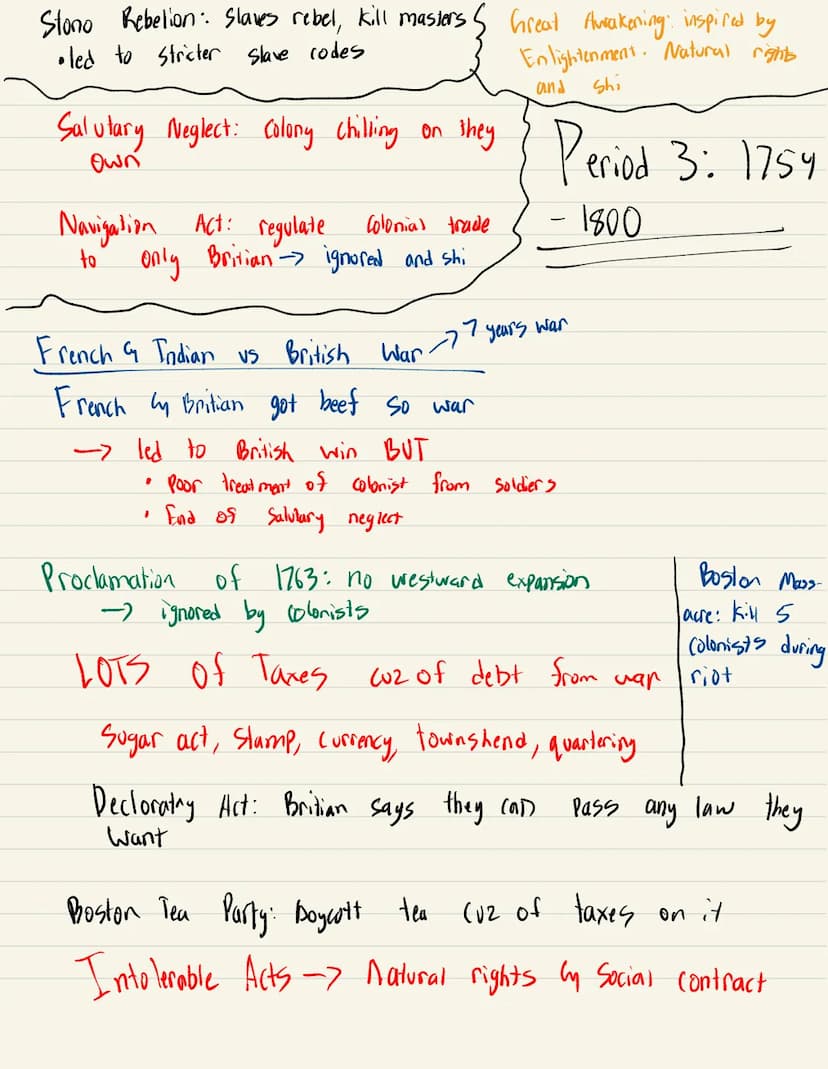 Stono Rebelion: Slaves rebel, kill masters
• led to stricter slave codes
Great Awakening: inspired by
Enlightenment. Natural rights
and shi
Salutary Neglect: Colony chilling on they
own
Navigation Act: regulate Colonial trade
to only Britian → ignored and shi
Period 3: 1754
- 1800
French & Indian vs British War → 7 years war
French & Britian got beef so war
→ led to British win BUT
• Poor treatment of colonist from soldiers
• End of Salutary neglect
Proclamation of 1763: no westward expansion
→ ignored by colonists
LOTS of Taxes cuz of debt from war
Sugar act, Stamp, Currency, townshend, quartering
Boston Mass-
acre: Kill 5
colonists during
riot
Decloratry Act: Britian says they can pass any law they
want
Boston Tea Party: boycott tea cuz of taxes on it
Intolerable Acts → Natural rights & Social contract